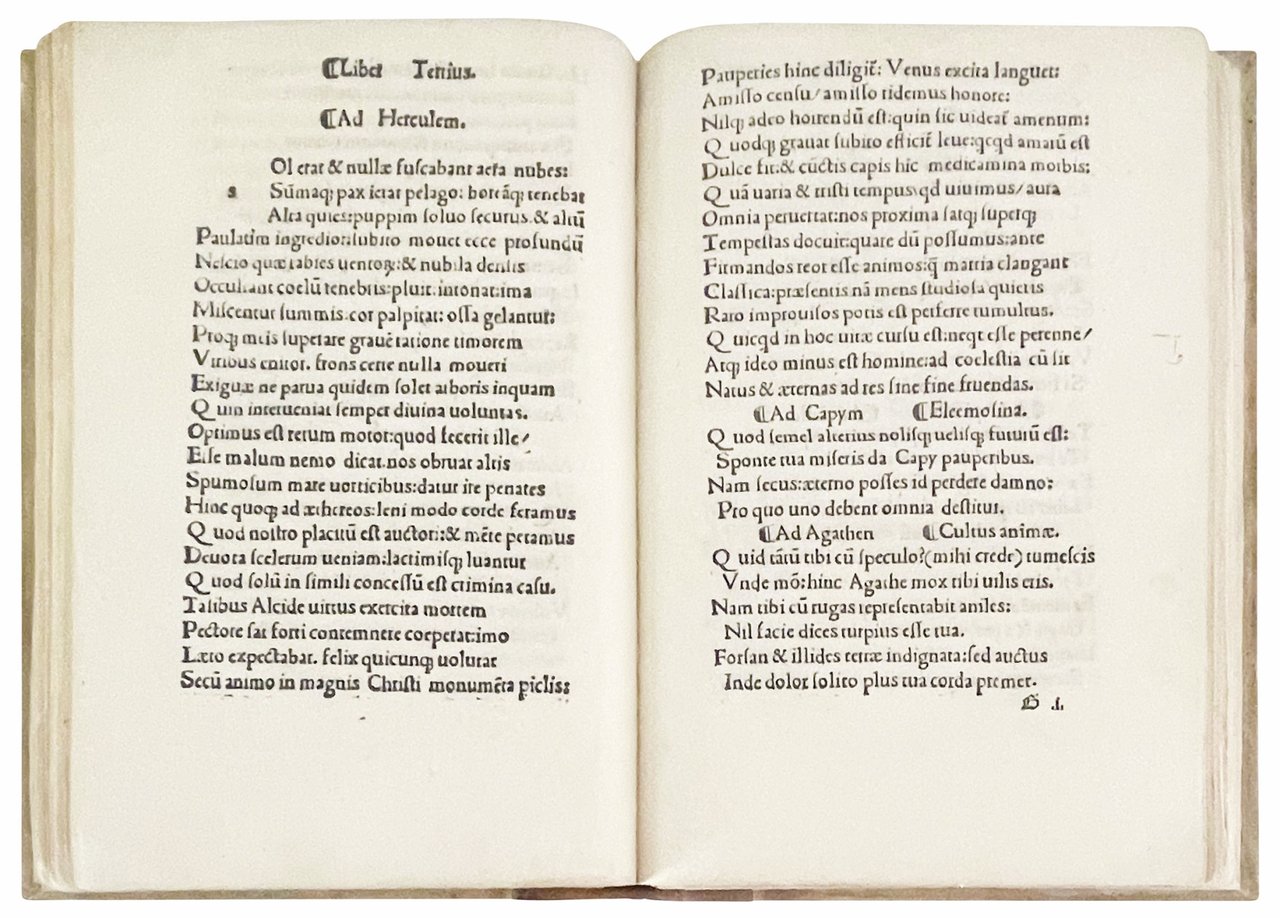 ¶Liber Tertius.
¶Ad Herculem.
Ol erat & nullæ fuſcabant aera nubes:
s Sūmaq; pax ierat pelago: boreāq; tenebat
Alta quies: puppim ſoluo ſecurus & altū
Paulatim ingredior: ſubito mouet ecce profundū
Neſcio quæ rabies uentoꝝ: & nubila denſis
Occultant coelū tenebris: pluit: intonat: ima
Miſcentur ſummis: cor palpitat: oſſa gelantur:
Proq; meis ſuperare grauē ratione timorem
Viribus enitor. frons certe nulla moueri
Exiguæ ne parua quidem ſolet arboris inquam
Quin interueniat ſemper diuina uoluntas.
Optimus eſt rerum motor: quod fecerit ille/
Eſſe malum nemo dicat. nos obruat altis
Spumoſum mare uorticibus: datur ire penates
Hinc quoq; ad æthereos: leni modo corde feramus
Quod noſtro placitū eſt auctori: & mēte petamus
Deuota ſcelerum ueniam: lacrimiſq; luantur
Quod ſolū in ſimili conceſſū eſt crimina caſu.
Talibus Alcide uirtus exercita mortem
Pectore ſat forti contemnere coeperat: imo
Læto expectabat. felix quicunq; uolutat
Secū animo in magnis Chriſti monumēta piclis:
Pauperies hinc diligit̄: Venus excita languet:
Amiſſo cenſu/ amiſſo ridemus honore:
Nilq; adeo horrendū eſt: quin ſic uideat̄ amentum:
Quodq; grauat ſubito efficit̄ leue: qcqd amarū eſt
Dulce fit: & cūctis capis hic medicamina morbis:
Quā uaria & triſti tempus qd uiuimus/ aura
Omnia peruertat: nos proxima ſatq; ſuperq;
Tempeſtas docuit: quare dū poſſumus: ante
Firmandos reor eſſe animos: q̄ martia clangant
Claſſica: præſentis nā mens ſtudioſa quietis
Raro improuiſos potis eſt perferre tumultus.
Quicqd in hoc uitæ curſu eſt: neqt eſſe perenne/
Atq; ideo minus eſt homine: ad coeleſtia cū ſit
Natus & æternas ad res ſine fine fruendas.
¶Ad Capym ¶Eleemoſina.
Quod ſemel alterius noliſq; ueliſq; futurū eſt:
Sponte tua miſeris da Capy pauperibus.
Nam ſecus: æterno poſſes id perdere damno:
Pro quo uno debent omnia deſtitui.
¶Ad Agathen ¶Cultus animæ.
Quid tātū tibi cū ſpeculo? (mihi crede) tumeſcis
Vnde mō: hinc Agathe mox tibi uilis eris.
Nam tibi cū rugas repreſentabit aniles:
Nil facie dices turpius eſſe tua.
Forſan & illides terræ indignata: ſed auctus
Inde dolor ſolito plus tua corda premet.
G i.